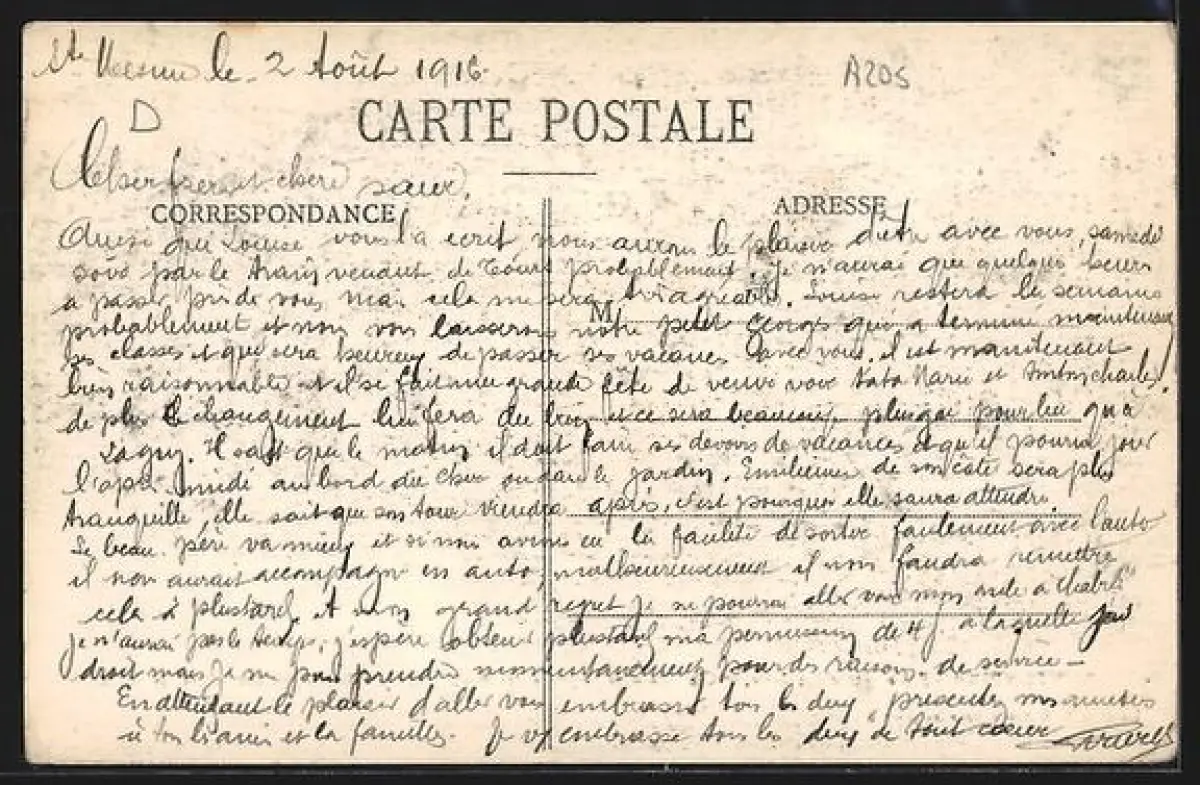 le 2 Août 1916
A205
D
CARTE POSTALE
Cher frère et chère sœur,
CORRESPONDANCE
ADRESSE
Ainsi que Louise vous l'a écrit nous aurons le plaisir d'être avec vous, samedi
soir par le train venant de Tours probablement. Je n'aurai que quelques heures
a passer près de vous mais cela me sera très agréable. Louise restera la semaine
M
probablement et nous vous laisserons notre petit Georges qui a terminé maintenant
ses classes et qui sera heureux de passer ses vacances avec vous. il est maintenant
bien raisonnable et il se fait une grande fête de venir voir tata Marie et Charles!
de plus le changement lui fera du bien et ce sera beaucoup plus gai pour lui qu'à
Lagny. Il sait que le matin il doit faire ses devoirs de vacances et qu'il pourra jouer
l'après midi au bord du Cher ou dans le jardin. Emilienne de son côté sera plus
tranquille, elle sait que son tour viendra après, c'est pourquoi elle saura attendre.
Le beau père va mieux et si nous avions eu la facilité de sortir facilement avec l'auto
il nous aurait accompagné en auto, malheureusement il nous faudra remettre
cela à plus tard. A mon grand regret je ne pourrai aller voir mon
je n'aurai pas le temps, j'espère obtenir plus tard ma permission de 4 j. à laquelle j'ai
droit mais je ne puis prendre momentanément pour des raisons de service -
En attendant le plaisir d'aller vous embrasser tous les deux, présentez nos amitiés
à et la famille. Je vs embrasse tous les deux de tout cœur